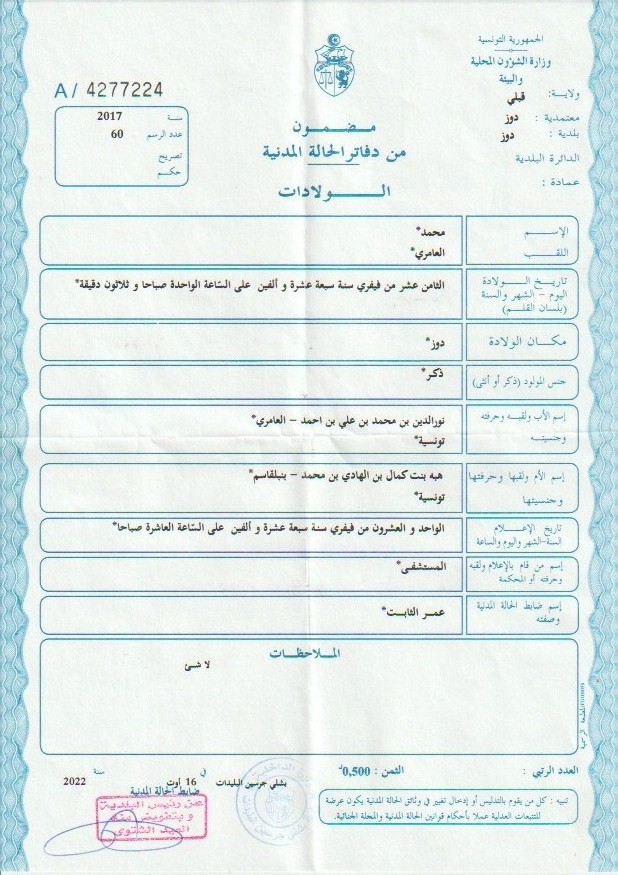 الجمهورية التونسية
وزارة الشؤون المحلية
والبيئة
ولاية: قبلي
معتمدية : دوز
بلدية : دوز
الدائرة البلدية
عمادة :
A/ 4277224
سنة 2017
عدد الرسم 60
تصريح
حكم
مضمون
من دفاتر الحالة المدنية
الولادات
الإسم محمد*
اللقب العامري*
تاريخ الولادة
اليوم - الشهر والسنة
(بلسان القلم)
الثامن عشر من فيفري سنة سبعة عشرة و ألفين على السّاعة الواحدة صباحا و ثلاثون دقيقة*
مكان الولادة دوز*
جنس المولود (ذكر أو أنثى) ذكر*
إسم الأب ولقبه وحرفته نورالدين بن محمد بن علي بن احمد - العامري*
وجنسيته تونسية*
إسم الأم ولقبها وحرفتها هبه بنت كمال بن الهادي بن محمد - بنبلقاسم*
وجنسيتها تونسية*
تاريخ الإعلام
السنة-الشهر واليوم والساعة
الواحد و العشرون من فيفري سنة سبعة عشرة و ألفين على السّاعة العاشرة صباحا*
إسم من قام بالإعلام ولقبه
وحرفته أو المحكمة
المستشفى*
إسم ضابط الحالة المدنية
وصفته
عمر الثابت*
الملاحظات
لا شئ
المطبعة الرسمية
العدد الرتبي : الثمن : 0,500د
بشلي جرسين البليدات في 16 أوت سنة 2022
ضابط الحالة المدنية
عن رئيس البلدية
و بتفويض منه
العيد الشتوي
تنبيه : كل من يقوم بالتدليس أو إدخال تغيير في وثائق الحالة المدنية يكون عرضة
للتتبعات العدلية عملا بأحكام قوانين الحالة المدنية والمجلة الجنائية.